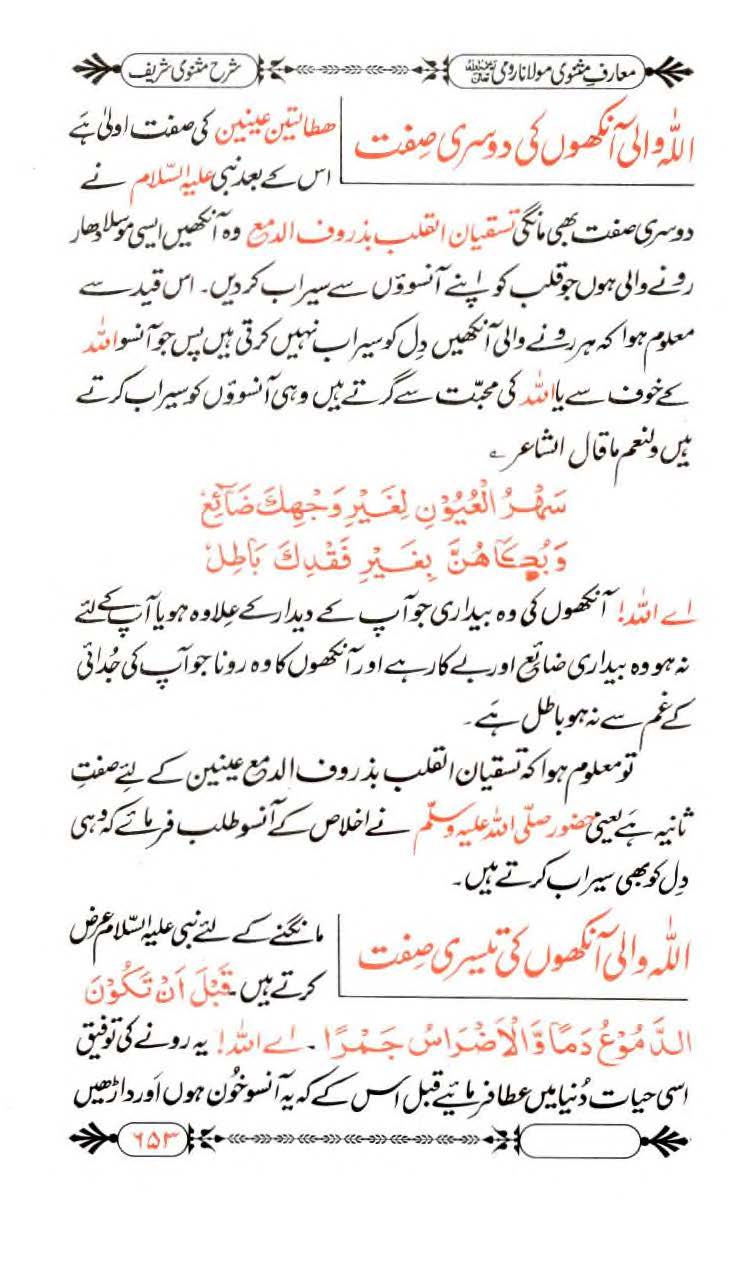 معارفِ مثنوی مولانا رومی
شرح مثنوی شریف
اللہ والی آنکھوں کی دوسری صِفت
ھطالتین عینین کی صفت اولیٰ ہے
اس کے بعد نبی علیہ السّلام نے
دوسری صفت بھی مانگی تسقیان القلب بذروف الدمع وہ آنکھیں ایسی موسلادھار
رونے والی ہوں جو قلب کو اپنے آنسوؤں سے سیراب کردیں۔ اس قید سے
معلوم ہوا کہ ہر رونے والی آنکھیں دِل کو سیراب نہیں کرتی ہیں پس جو آنسو اللہ
کے خوف سے یا اللہ کی محبّت سے گرتے ہیں وہی آنسوؤں کو سیراب کرتے
ہیں ولنعم ماقال الشاعر ؎
سَهْرُ الْعُيُوْنِ لِغَيْرِ وَجْهِكَ ضَآئِعٌ
وَبُكَاهُنَّ بِغَيْرِ فَقْدِكَ بَاطِلُ
اے اللہ! آنکھوں کی وہ بیداری جو آپ کے دیدار کے علاوہ ہو یا آپ کے لئے
نہ ہو وہ بیداری ضائع اور بے کار ہے اور آنکھوں کا وہ رونا جو آپ کی جُدائی
کے غم سے نہ ہو باطل ہے۔
تو معلوم ہوا کہ تسقیان القلب بذروف الدمع عینین کے لئے صفتِ
ثانیہ ہے یعنی حضور صلّی اللہ علیہ وسلّم نے اخلاص کے آنسو طلب فرمائے کہ وہی
دِل کو بھی سیراب کرتے ہیں۔
اللہ والی آنکھوں کی تیسری صِفت
مانگنے کے لئے نبی علیہ السّلام عرض
کرتے ہیں۔ قَبْلَ اَنْ تَكُوْنَ
الدُّمُوْعُ دَمًا وَّالْاَضْرَاسُ جَمْرًا۔ اے اللہ! یہ رونے کی توفیق
اسی حیات دُنیا میں عطا فرمائیے قبل اس کے کہ یہ آنسو خُون ہوں اور داڑھیں
۶۵۳